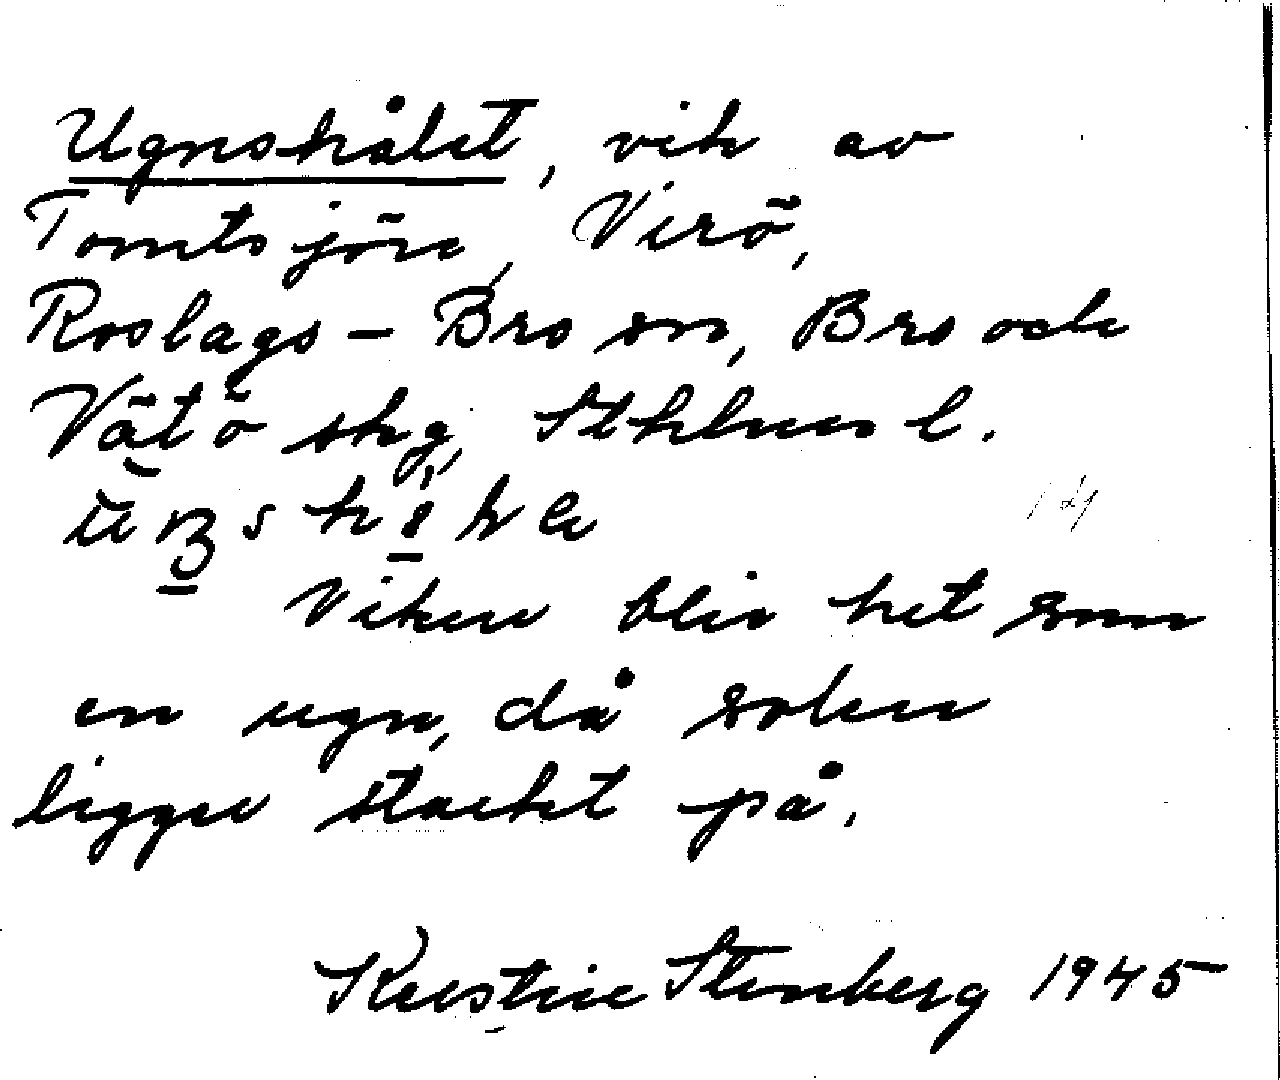 Ugnshålet, vik av
Tomtsjön, Virö,
Roslags-Bro sn, Bro och
Vätö skg, Sthlms l.
Viken blir het som
en ugn, då solen
ligger starkt på.
Kerstin Stenberg 1945